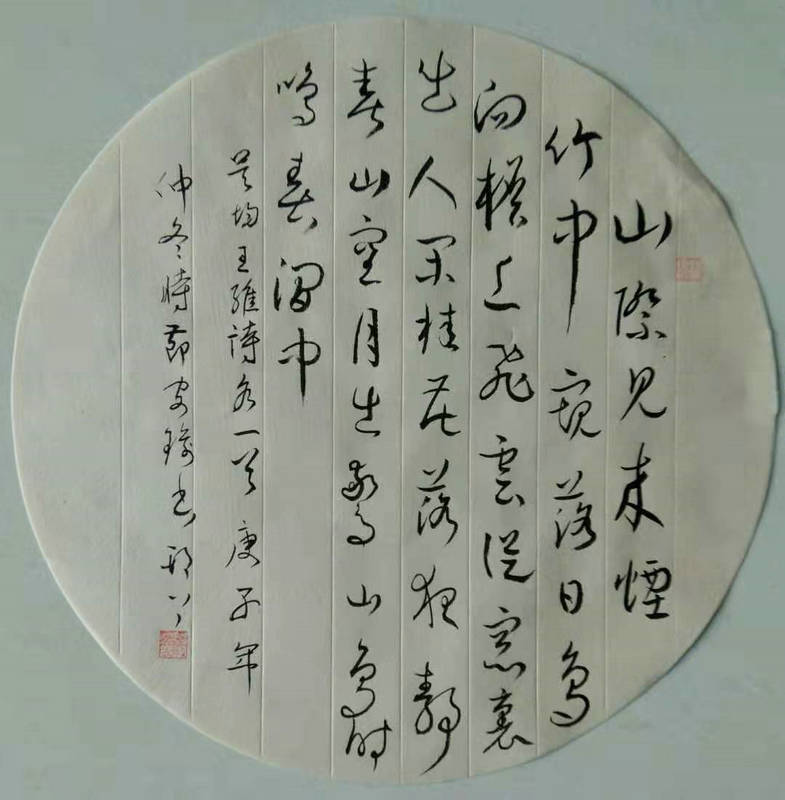 山際見来煙
竹中窺落日鳥
向檐上飛雲從窓裏
出人閑桂花落夜靜
春山空月出驚山鳥時
鳴春澗中
吴均王維詩各一首庚子年
仲冬時節